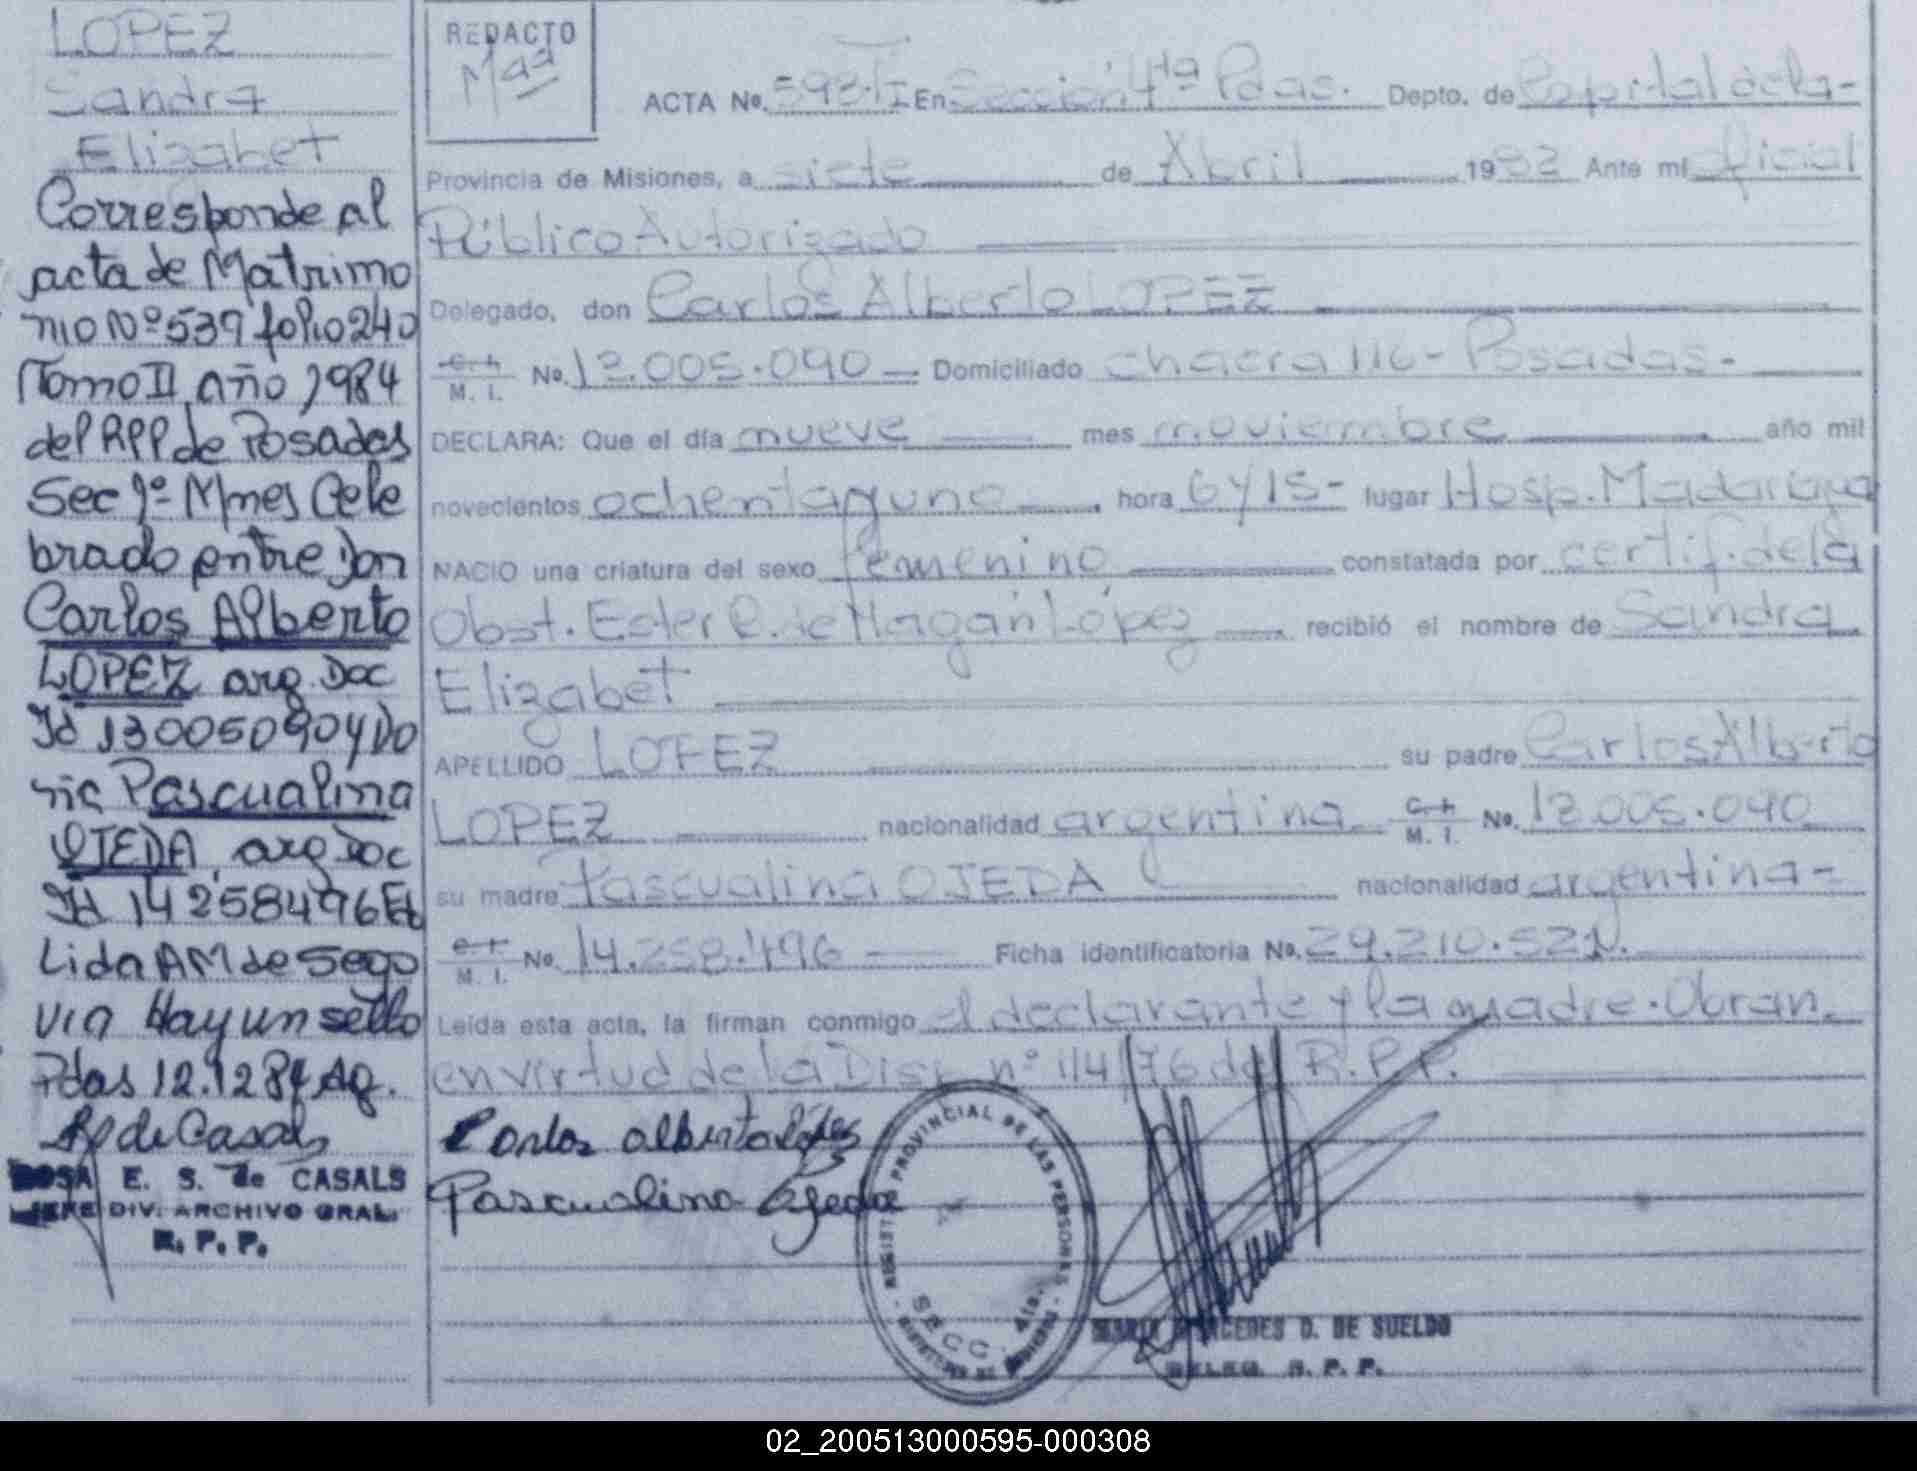 LOPEZ
Sandra
Elizabet
Corresponde al
acta de Matrimo
nio Nº 539 folio 240
Tomo II año 1984
del RPP de Posadas
Sec 1º Mnes Cele
brado entre Don
Carlos Alberto
LOPEZ arg. Doc
Id 13005090 y Do
ña Pascualina
OJEDA arg Doc
Id 14258496
Lida AM de Sego
via Hay un sello
Pdas 12.12.84
de Casals
ROSA E. S. de CASALS
JEFE DIV. ARCHIVO GRAL.
R. P. P.
REDACTO
ACTA No. En Sección 4ta Pdas. Depto. de Capital de la-
Provincia de Misiones, a siete de Abril 1982 Ante mí Oficial
Público Autorizado
Delegado, don Carlos Alberto LOPEZ
C. I. M. I. No. 13.005.090 Domiciliado chacra 116- Posadas-
DECLARA: Que el día nueve mes noviembre año mil
novecientos ochenta y uno hora 6 y 15- lugar Hosp. Madariaga
NACIO una criatura del sexo femenino constatada por certif. de la
Obst. Ester de Magán López recibió el nombre de Sandra
Elizabet
APELLIDO LOPEZ su padre Carlos Alberto
LOPEZ nacionalidad argentina C. I. M. I. No. 13.005.090
su madre Pascualina OJEDA nacionalidad argentina-
C. I. M. I. No. 14.258.496 Ficha identificatoria No. 29.210.521.
Leída esta acta, la firman conmigo el declarante y la madre. Obran
en virtud de la Disp. nº 114/76 del R.P.P.
Carlos alberto lópes
Pascualina Ojeda
REGISTRO PROVINCIAL DE LAS PERSONAS
SECC. 4ta.
MARIA MERCEDES D. DE SUELDO
DELEG. R. P. P.
02_200513000595-000308